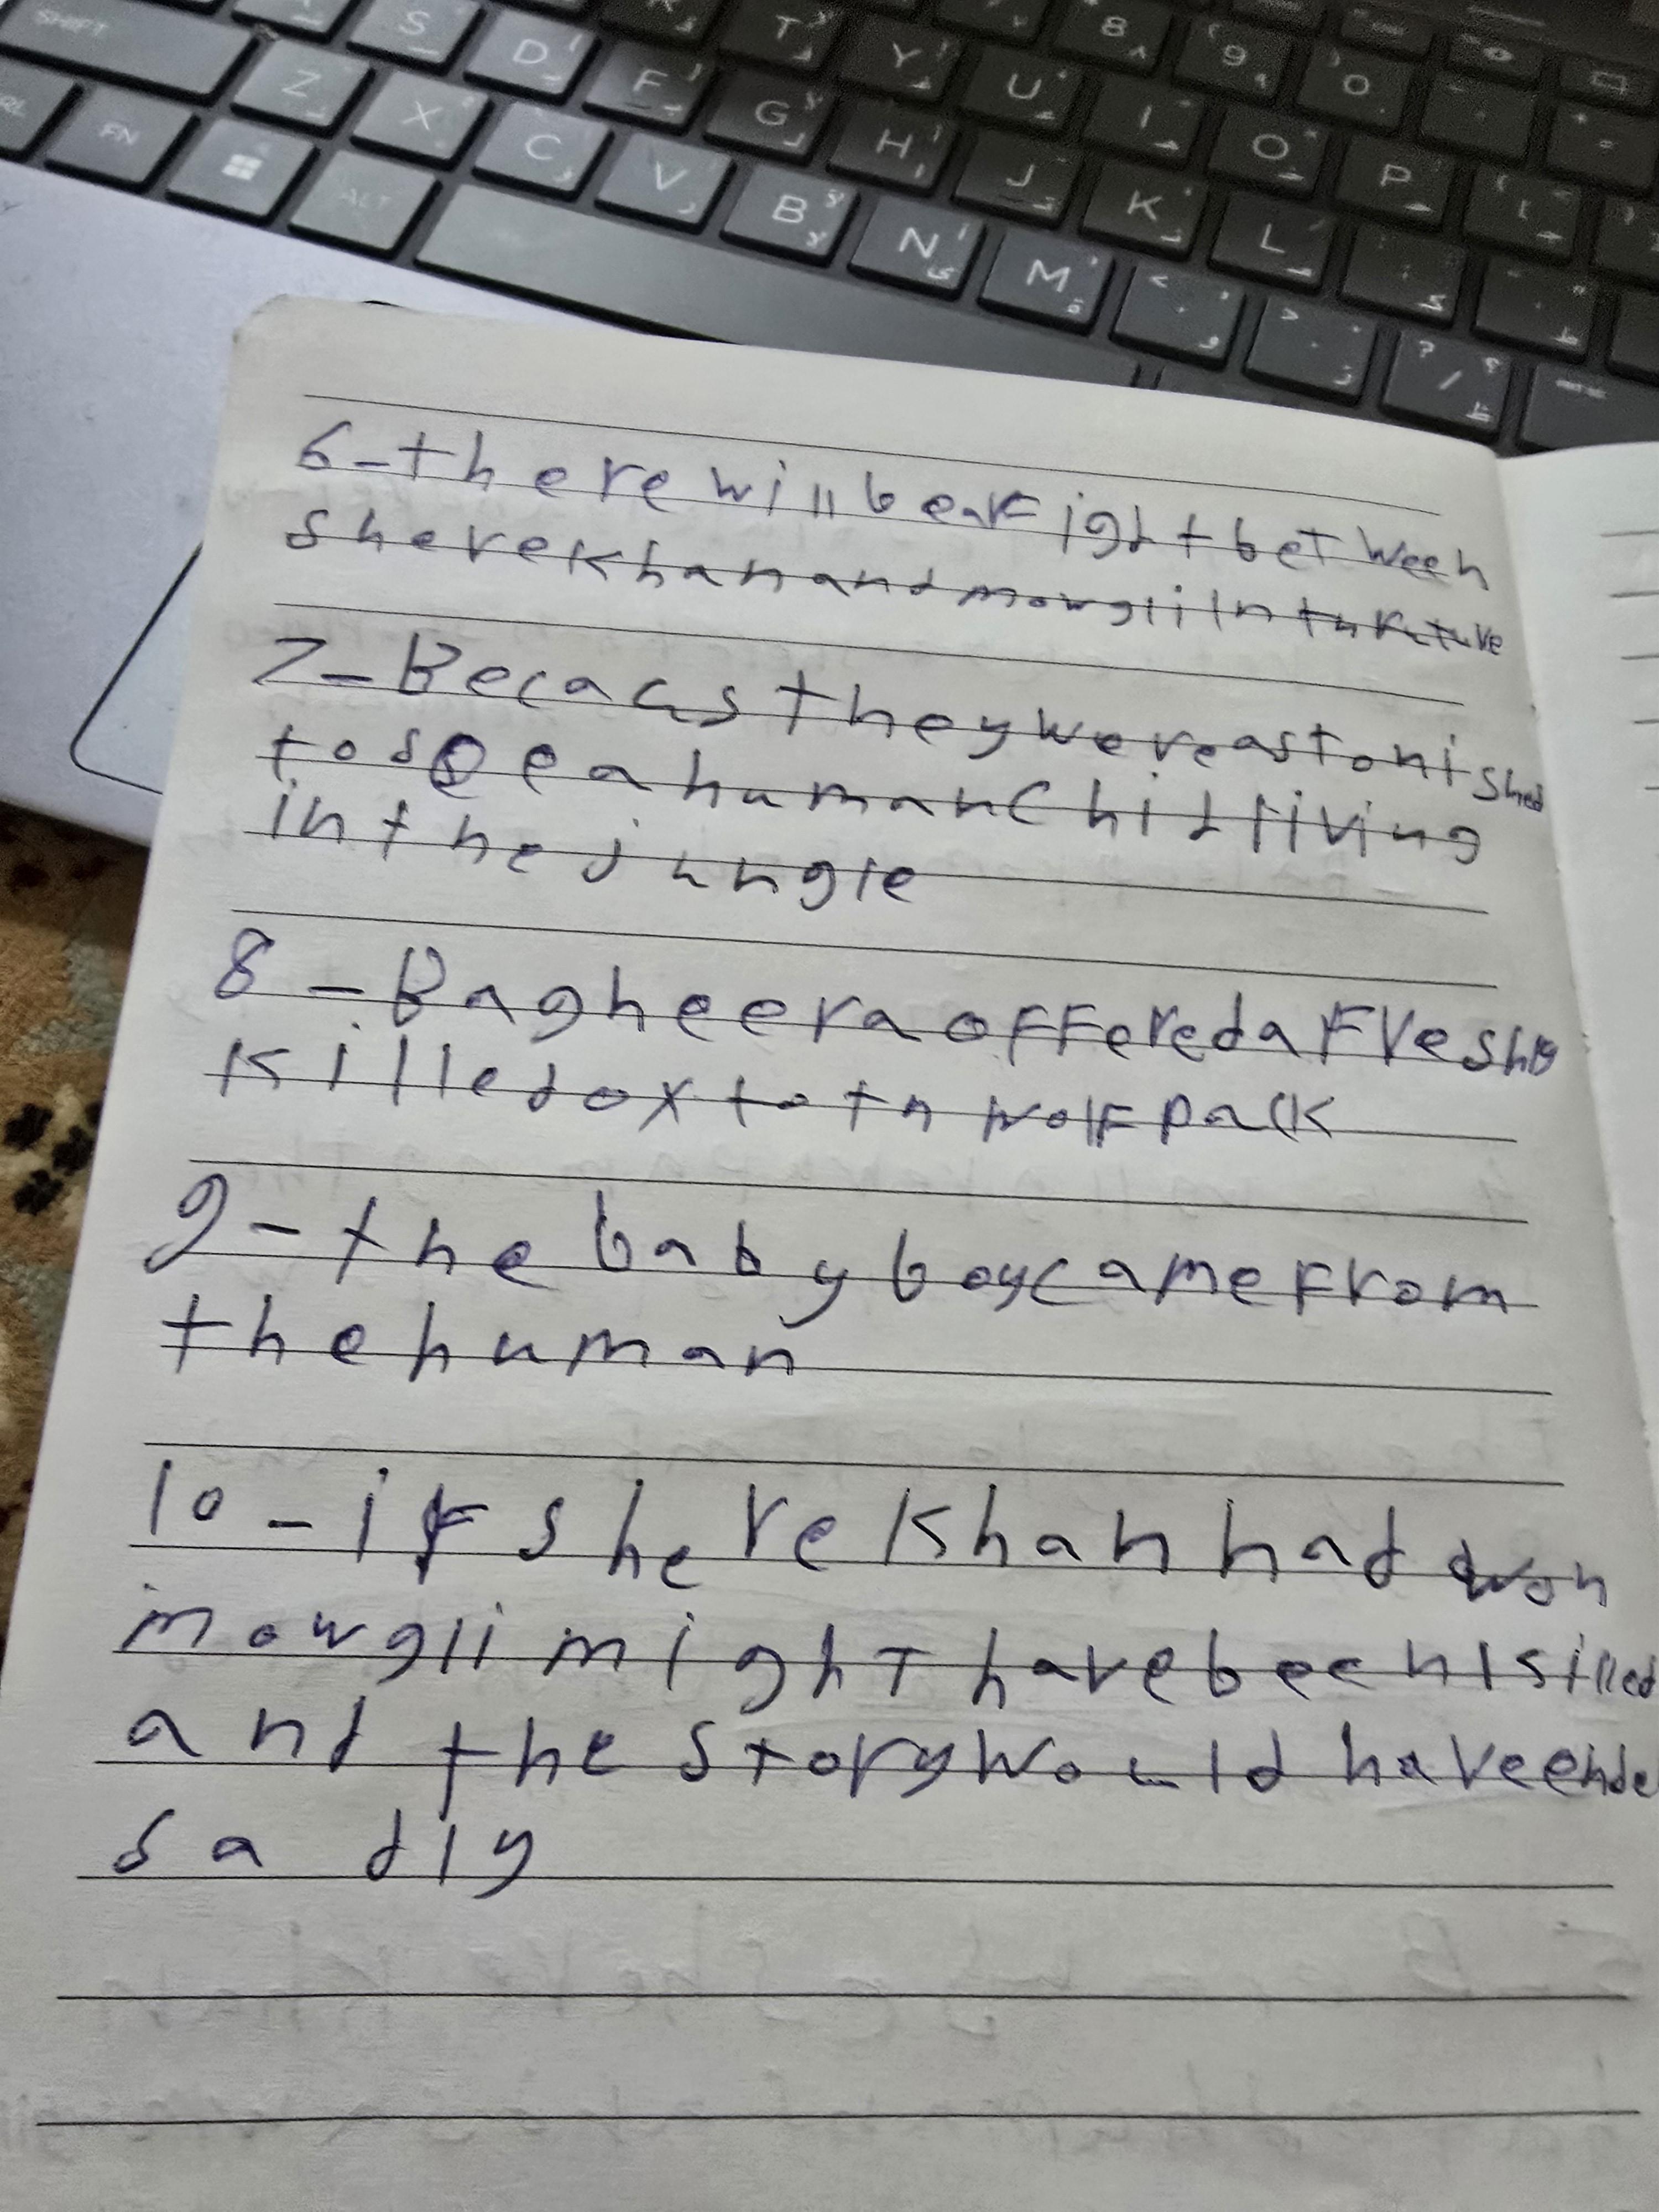 SHIFT S D F T Y U 8 9 0
FN Z X C V G H J I O P
ALT B N M K L
6-there will be a Fight between
shere Khan and mowgli in th Future
7-Becacus they were astonished
to see a human Chid living
in the jungle
8-Bagheera offered a Fresh
Killed ox to th wolf pack
9-the baby boy came From
the human
10-if shere Khan had won
mowgli might have been killed
and the story would have ende
sadly